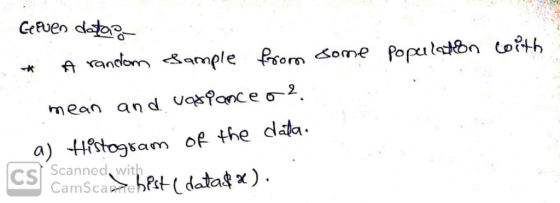 Given data:-
* A random sample from some population with
mean and variance σ².
a) Histogram of the data.
> hist(data$x).
CS Scanned with
CamScanner